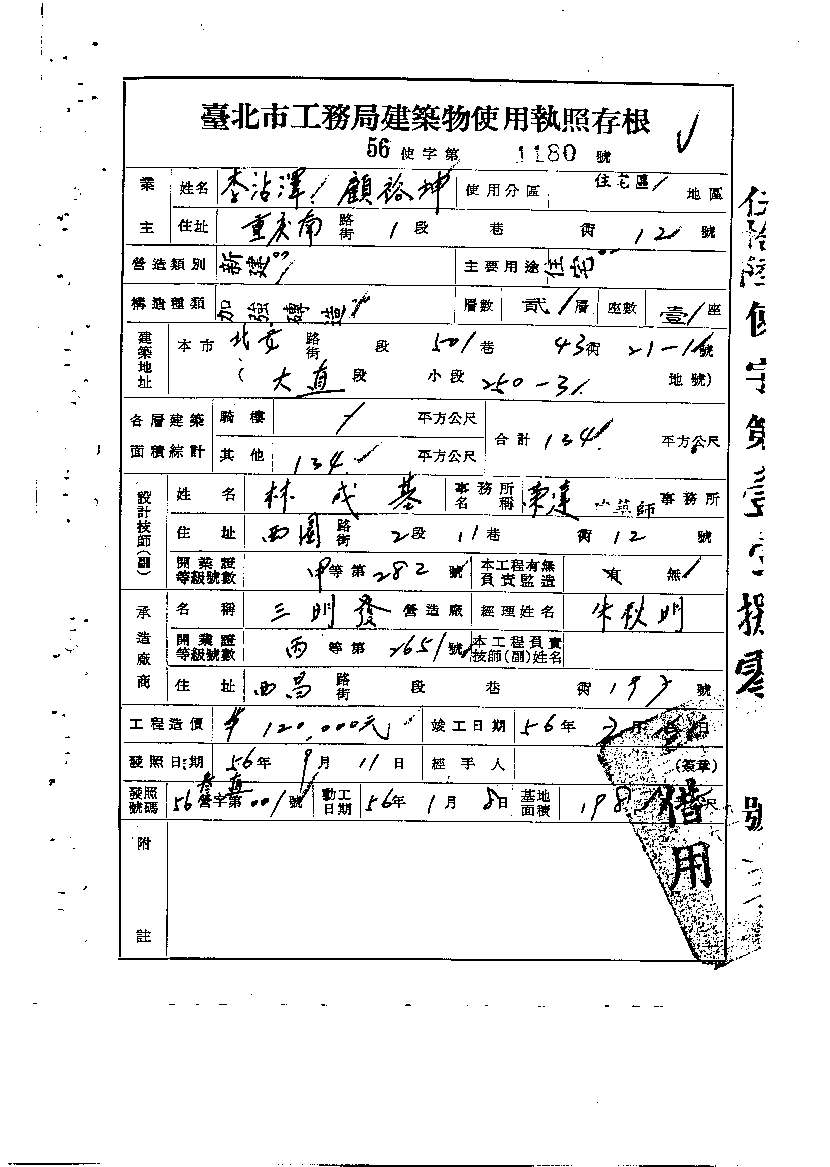 臺北市工務局建築物使用執照存根
56 使字第 1180 號
業主 姓名 李沾澤 顧裕坤 使用分區 住宅區 地區
住址 重慶南 路街 1 段 巷 衖 12 號
營造類別 新建 主要用途 住宅
構造種類 加強磚造 層數 貳 層 座數 壹 座
建築地址 本市 北安 路街 段 501 巷 43 衖 21-1 號
(大直 段 小段 250-3 地號)
各層建築面積綜計 騎樓 / 平方公尺 合計 134 平方公尺
其他 134 平方公尺
設計技師(副) 姓名 林成基 事務所名稱 東達 建築師 事務所
住址 西園 路街 2 段 11 巷 衖 12 號
開業證等級號數 甲 等第 282 號 本工程有無負責監造 有 無
承造廠商 名稱 三明發 營造廠 經理姓名 朱秋明
開業證等級號數 丙 等第 2651 號 本工程負責技師(副)姓名
住址 西昌 路街 段 巷 衖 號
工程造價 120,000元 竣工日期 56 年 月 日
發照日期 56 年 9 月 11 日 經手人 (簽章)
發照號碼 56 營字第 001 號 動工日期 56 年 1 月 8 日 基地面積 198 尺
附註
借用
使字第壹
零
號